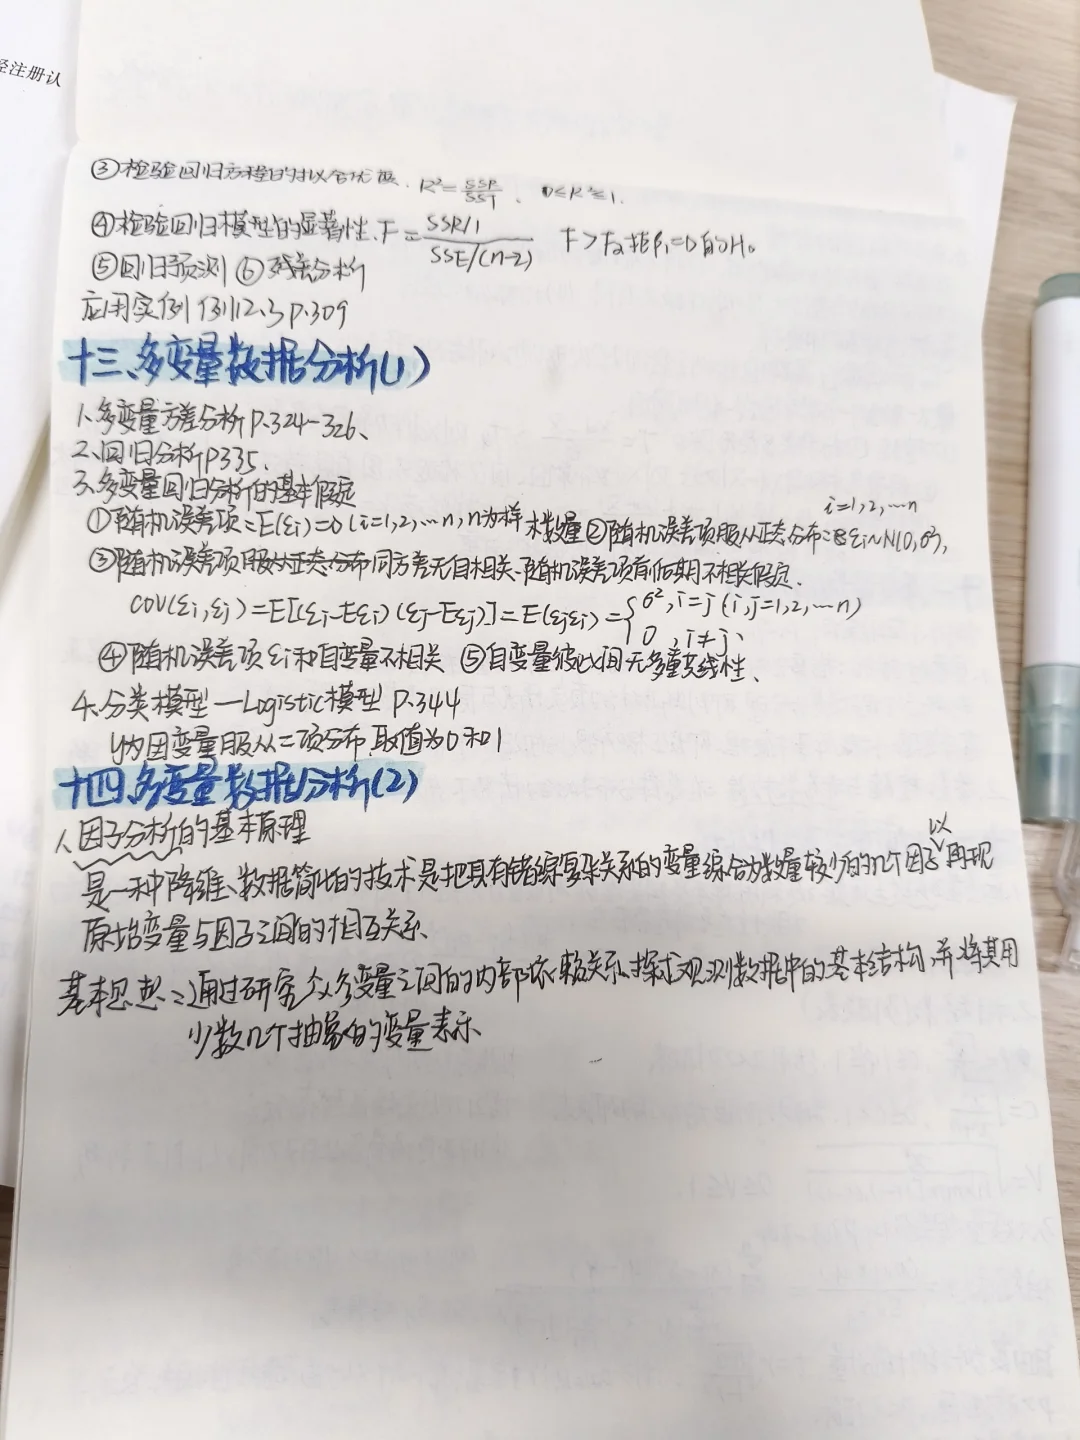 经注册认
③检验回归方程的拟合优度. R²=SSR/SST. 0≤R²≤1.
④检验回归模型的显著性、F=(SSR/1)/(SSE/(n-2)) F>Fα拒β₁=0的H₀
⑤回归预测 ⑥残差分析
应用实例 例12.3 P.309
十三、多变量数据分析(1)
1、多变量方差分析P.324-326、
2、回归分析P335、
3、多变量回归分析的基本假定
i=1,2,…n
①随机误差项:E(εi)=0(i=1,2,…n,n为样本数量②随机误差项服从正态分布:εi~N(0,σ²),
③随机误差项服从正态分布同方差无自相关、随机误差项前后期不相关假定、
COV(εi,εj)=E[(εi-Eεi)(εj-Eεj)]=E(εjεi)={σ²,i=j(i,j=1,2,…n)
0,i≠j、
④随机误差项εi和自变量不相关 ⑤自变量彼此间无多重共线性、
4、分类模型—Logistic模型 P.344
y为因变量服从二项分布,取值为0和1
十四、多变量数据分析(2)
1、因子分析的基本原理
是一种降维、数据简化的技术是把具有错综复杂关系的变量综合为数量较少的几个因子以再现
原始变量与因子之间的相互关系、
基本思想:通过研究众多变量之间的内部依赖关系、探求观测数据中的基本结构,并将其用
少数几个抽象的变量表示